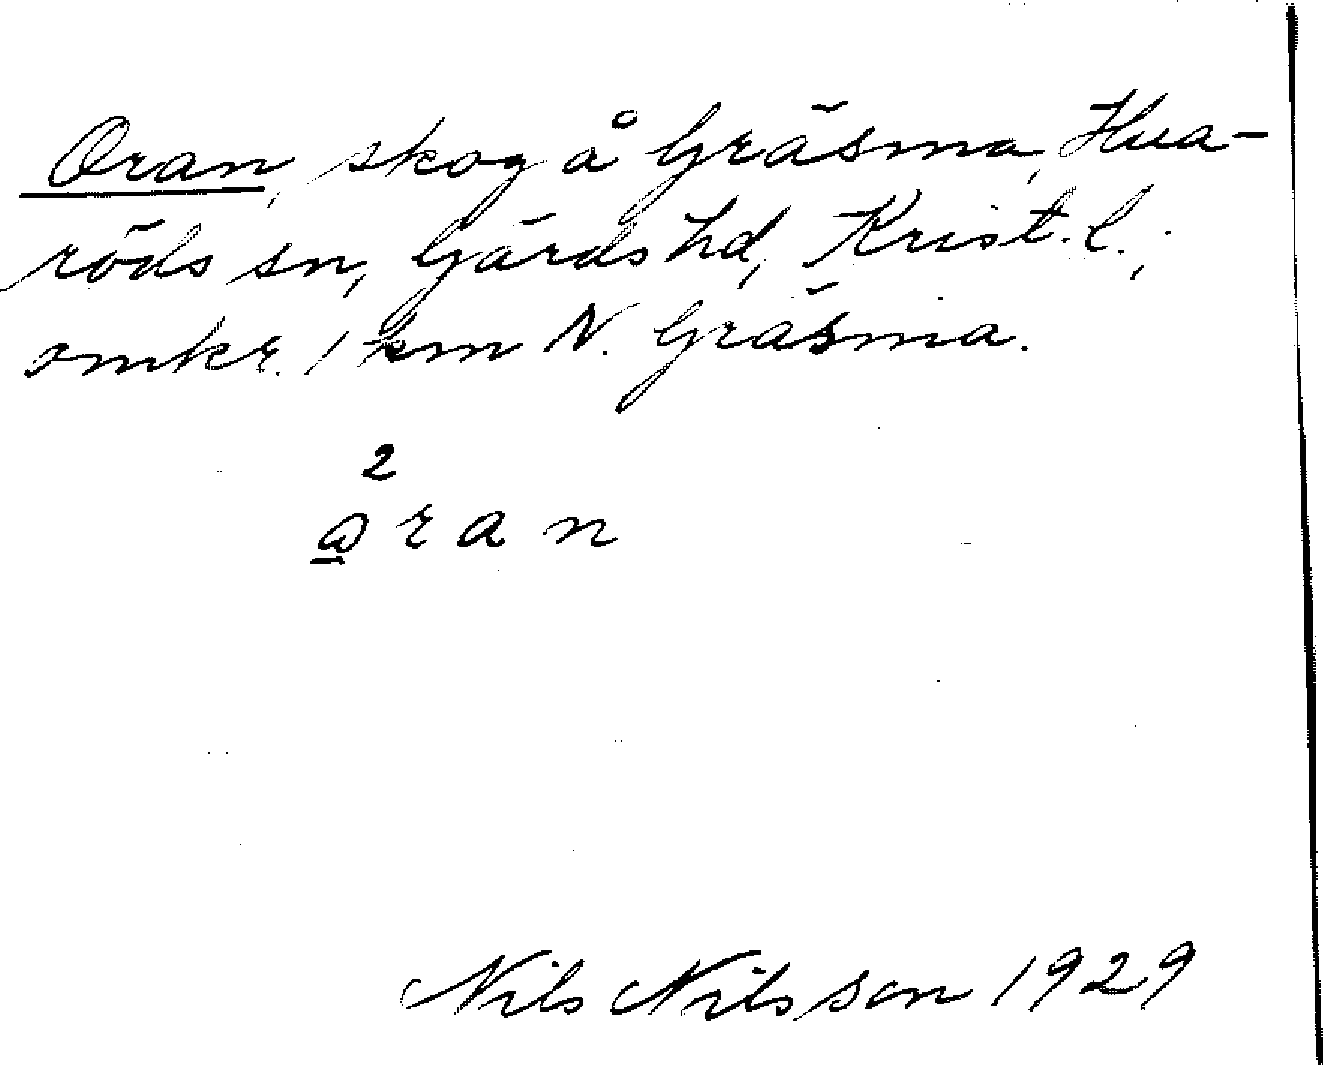 Oran, skog å Gräsma, Hua-
röds sn, Gärds hd, Krist. l.,
omkr. 1 km N. Gräsma.
2
a̲ran
Nils Nilsson 1929